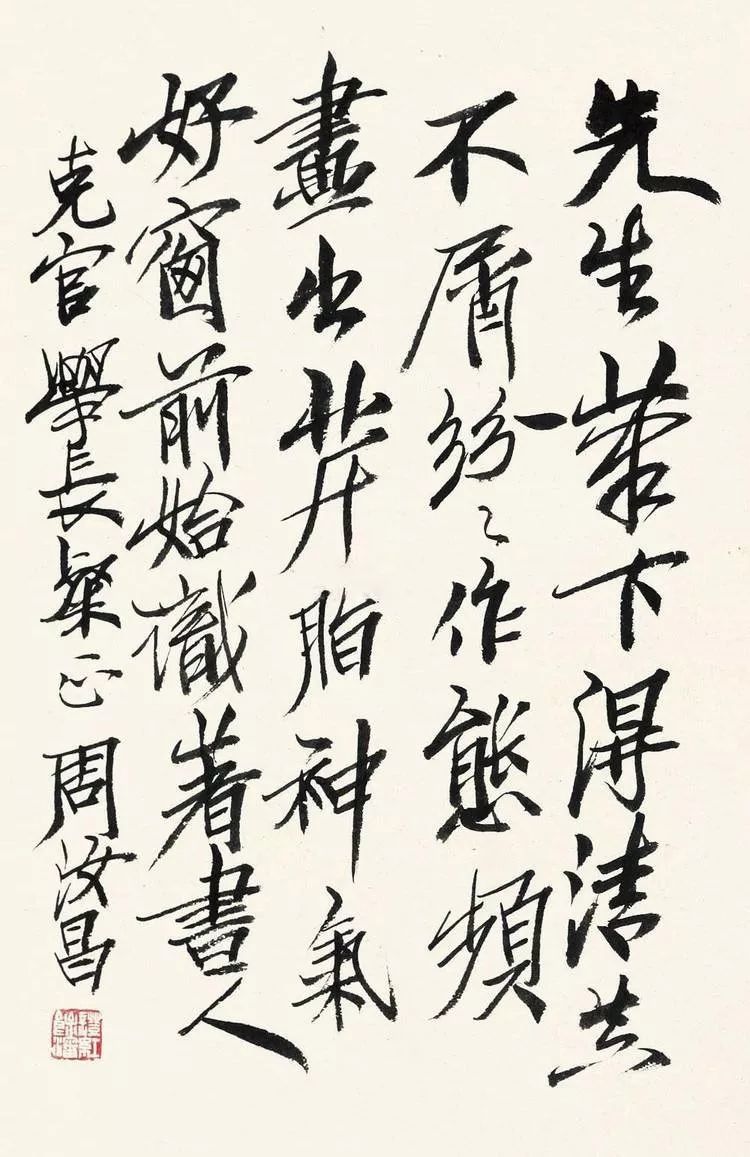 先生筆下得清真
不屑紛々作態頻
畫出芹脂神氣
好窗前始識著書人
克官學長粲正 周汝昌